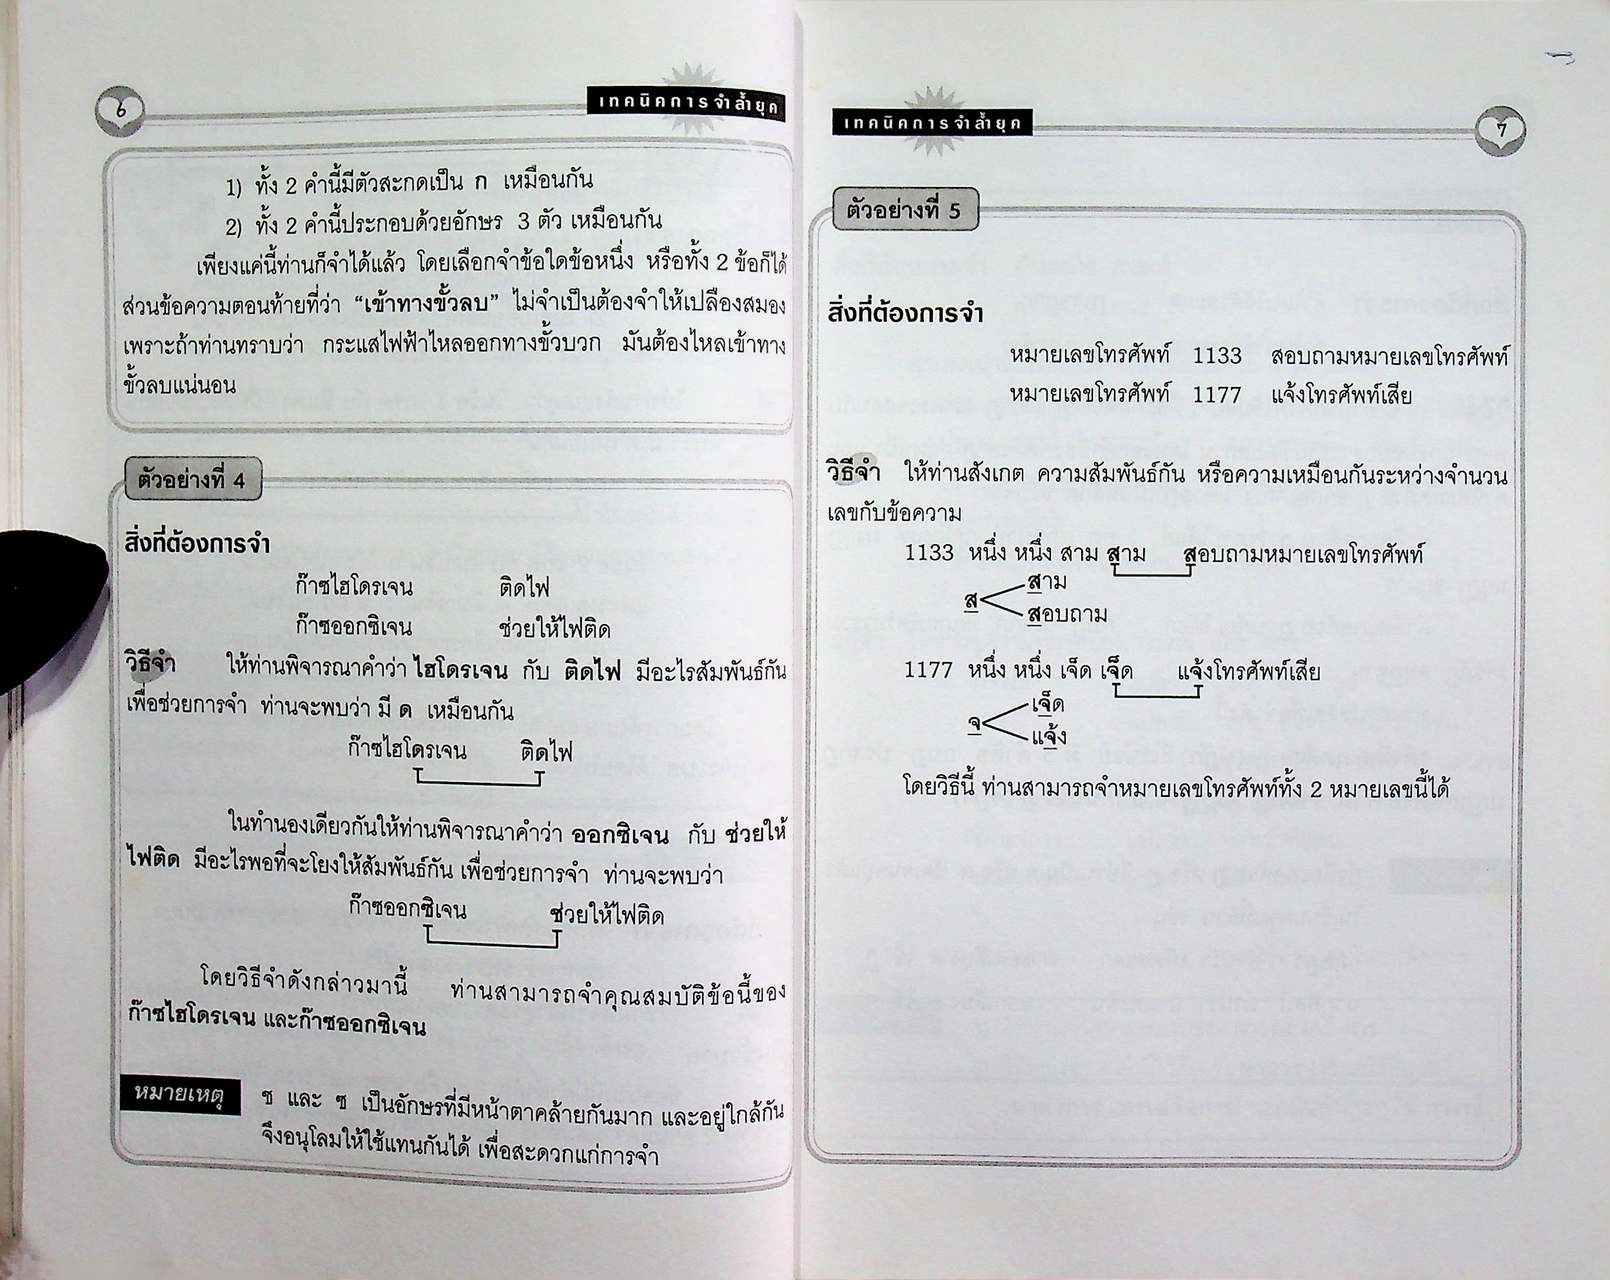 6
เทคนิคการจำล้ำยุค
1) ทั้ง 2 คำนี้มีตัวสะกดเป็น ก เหมือนกัน
2) ทั้ง 2 คำนี้ประกอบด้วยอักษร 3 ตัว เหมือนกัน
เพียงแค่นี้ท่านก็จำได้แล้ว โดยเลือกจำข้อใดข้อหนึ่ง หรือทั้ง 2 ข้อก็ได้
ส่วนข้อความตอนท้ายที่ว่า “เข้าทางขั้วลบ” ไม่จำเป็นต้องจำให้เปลืองสมอง
เพราะถ้าท่านทราบว่า กระแสไฟฟ้าไหลออกทางขั้วบวก มันต้องไหลเข้าทาง
ขั้วลบแน่นอน
ตัวอย่างที่ 4
สิ่งที่ต้องการจำ
ก๊าซไฮโดรเจน ติดไฟ
ก๊าซออกซิเจน ช่วยให้ไฟติด
วิธีจำ ให้ท่านพิจารณาคำว่า ไฮโดรเจน กับ ติดไฟ มีอะไรสัมพันธ์กัน
เพื่อช่วยการจำ ท่านจะพบว่า มี ด เหมือนกัน
ก๊าซไฮโดรเจน ติดไฟ
ในทำนองเดียวกันให้ท่านพิจารณาคำว่า ออกซิเจน กับ ช่วยให้
ไฟติด มีอะไรพอที่จะโยงให้สัมพันธ์กัน เพื่อช่วยการจำ ท่านจะพบว่า
ก๊าซออกซิเจน ช่วยให้ไฟติด
โดยวิธีจำดังกล่าวมานี้ ท่านสามารถจำคุณสมบัติข้อนี้ของ
ก๊าซไฮโดรเจน และก๊าซออกซิเจน
หมายเหตุ ช และ ซ เป็นอักษรที่มีหน้าตาคล้ายกันมาก และอยู่ใกล้กัน
จึงอนุโลมให้ใช้แทนกันได้ เพื่อสะดวกแก่การจำ
เทคนิคการจำล้ำยุค
7
ตัวอย่างที่ 5
สิ่งที่ต้องการจำ
หมายเลขโทรศัพท์ 1133 สอบถามหมายเลขโทรศัพท์
หมายเลขโทรศัพท์ 1177 แจ้งโทรศัพท์เสีย
วิธีจำ ให้ท่านสังเกต ความสัมพันธ์กัน หรือความเหมือนกันระหว่างจำนวน
เลขกับข้อความ
1133 หนึ่ง หนึ่ง สาม สาม สอบถามหมายเลขโทรศัพท์
สาม
ส
สอบถาม
1177 หนึ่ง หนึ่ง เจ็ด เจ็ด แจ้งโทรศัพท์เสีย
เจ็ด
จ
แจ้ง
โดยวิธีนี้ ท่านสามารถจำหมายเลขโทรศัพท์ทั้ง 2 หมายเลขนี้ได้